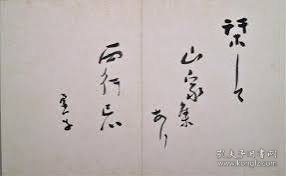 栞して
山家集
あり
西行忌
虚子
孔夫子旧书网